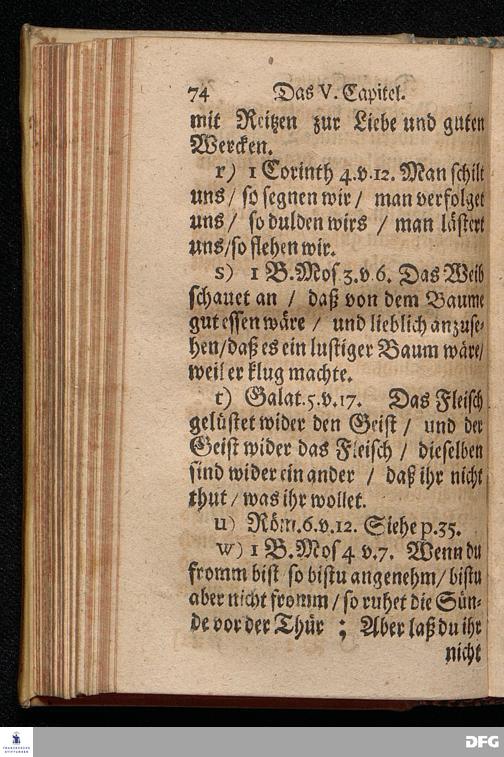 74 Das V. Capitel.
mit Reitzen zur Liebe und guten
Wercken.
r) 1 Corinth 4.v.12. Man schilt
uns / so segnen wir / man verfolget
uns / so dulden wirs / man lästert
uns/so flehen wir.
s) 1 B.Mos 3.v.6. Das Weib
schauet an / daß von dem Baume
gut essen wäre / und lieblich anzuse-
hen/daß es ein lustiger Baum wäre/
weil er klug machte.
t) Galat.5.v.17. Das Fleisch
gelüstet wider den Geist / und der
Geist wider das Fleisch / dieselben
sind wider ein ander / daß ihr nicht
thut / was ihr wollet.
u) Röm.6.v.12. Siehe p.35.
w) 1 B.Mos 4 v.7. Wenn du
fromm bist so bistu angenehm/bistu
aber nicht fromm/so ruhet die Sün-
de vor der Thür ; Aber laß du ihr
nicht
FRANCKESCHE
STIFTUNGEN
DFG